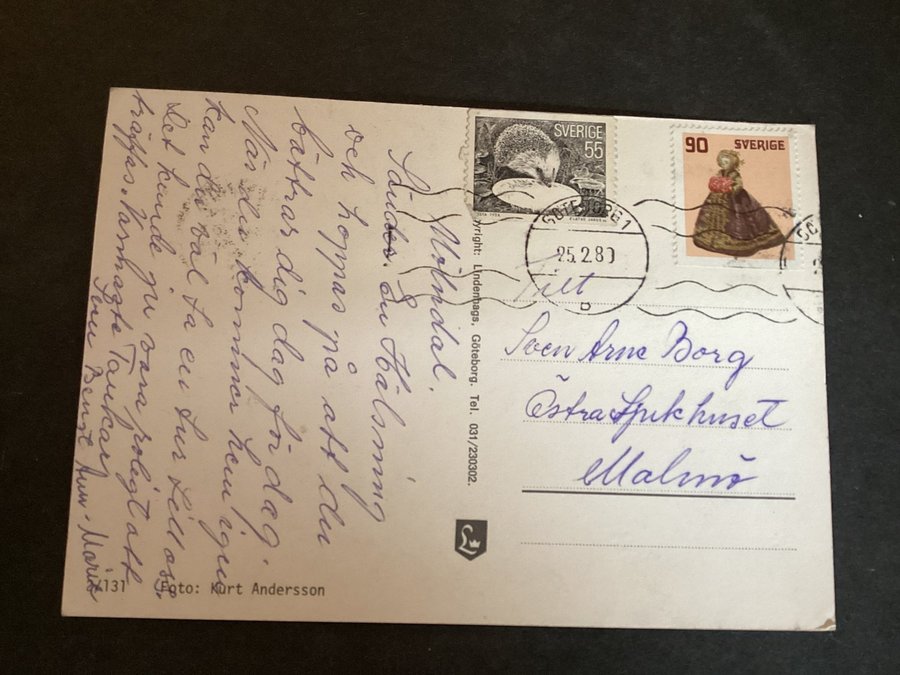 Mölndal.
Sänder En Hälsning
och hoppas på att du
bättrar dig dag för dag.
När du kommer hem igen
kan du väl ta en tur till oss
Det kunde ju vara roligt att
träffas. Varmaste Tankar
Bengt Ann-Marie
SVERIGE
55
90 SVERIGE
GÖTEBORG 1
25.2.80
b
Sven Arne Borg
Östra Sjukhuset
Malmö
yright: Lindenhags, Göteborg. Tel. 031/230302.
L
4131 Foto: Kurt Andersson